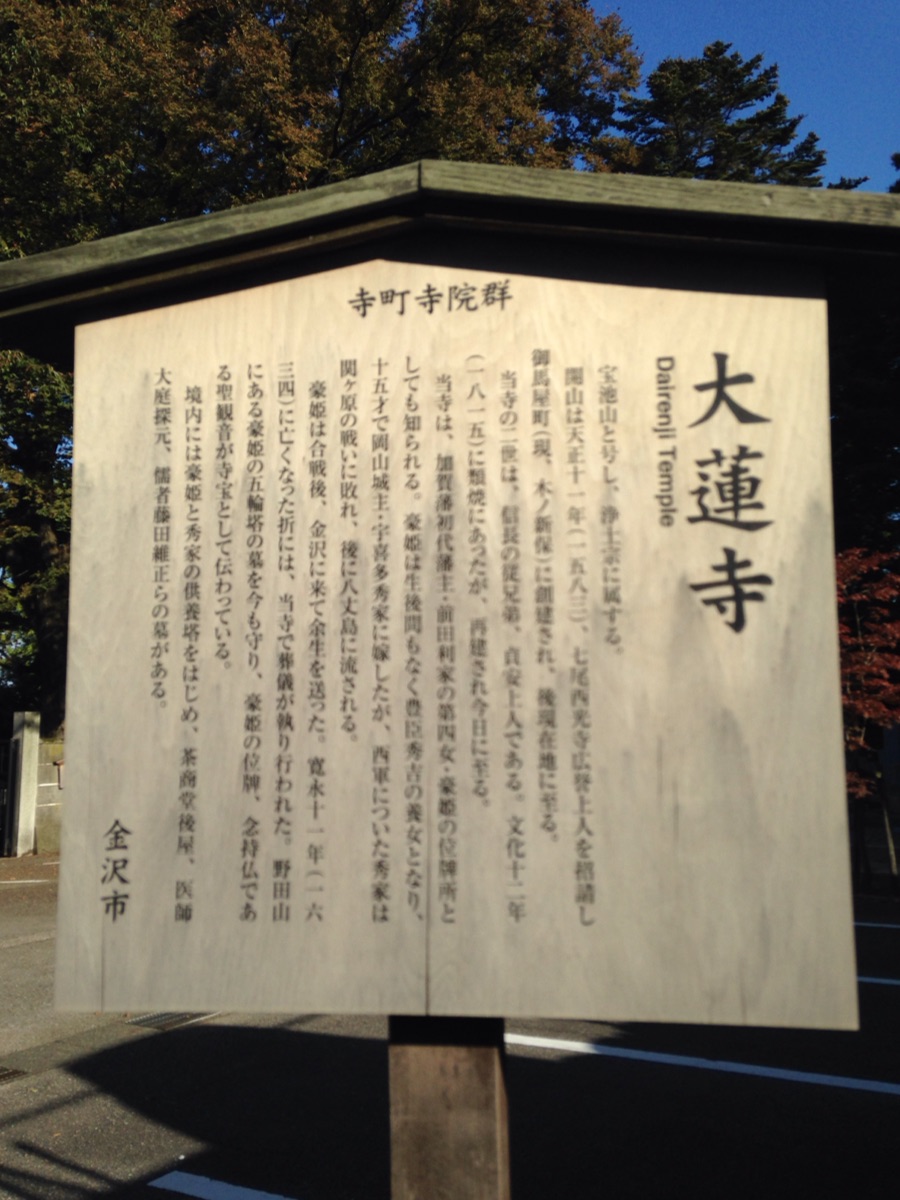 寺町寺院群
大蓮寺
Dairenji Temple
宝池山と号し、浄土宗に属する。
開山は天正十一年(一五八三)、七尾西光寺広誉上人を招請し
御馬屋町(現、木ノ新保)に創建され、後現在地に至る。
当寺の二世は、信長の従兄弟、貞安上人である。文化十二年
(一八一五)に類焼にあったが、再建され今日に至る。
当寺は、加賀藩初代藩主・前田利家の第四女・豪姫の位牌所と
しても知られる。豪姫は生後間もなく豊臣秀吉の養女となり、
十五才で岡山城主・宇喜多秀家に嫁したが、西軍についた秀家は
関ヶ原の戦いに敗れ、後に八丈島に流される。
豪姫は合戦後、金沢に来て余生を送った。寛永十一年(一六
三四)に亡くなった折には、当寺で葬儀が執り行われた。野田山
にある豪姫の五輪塔の墓を今も守り、豪姫の位牌、念持仏であ
る聖観音が寺宝として伝わっている。
境内には豪姫と秀家の供養塔をはじめ、茶商堂後屋、医師
大庭探元、儒者藤田維正らの墓がある。
金沢市